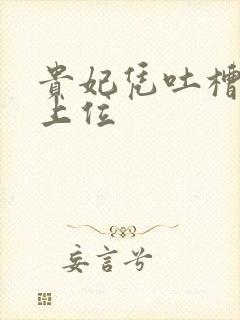 貴妃凭吐槽
上位
妄言兮